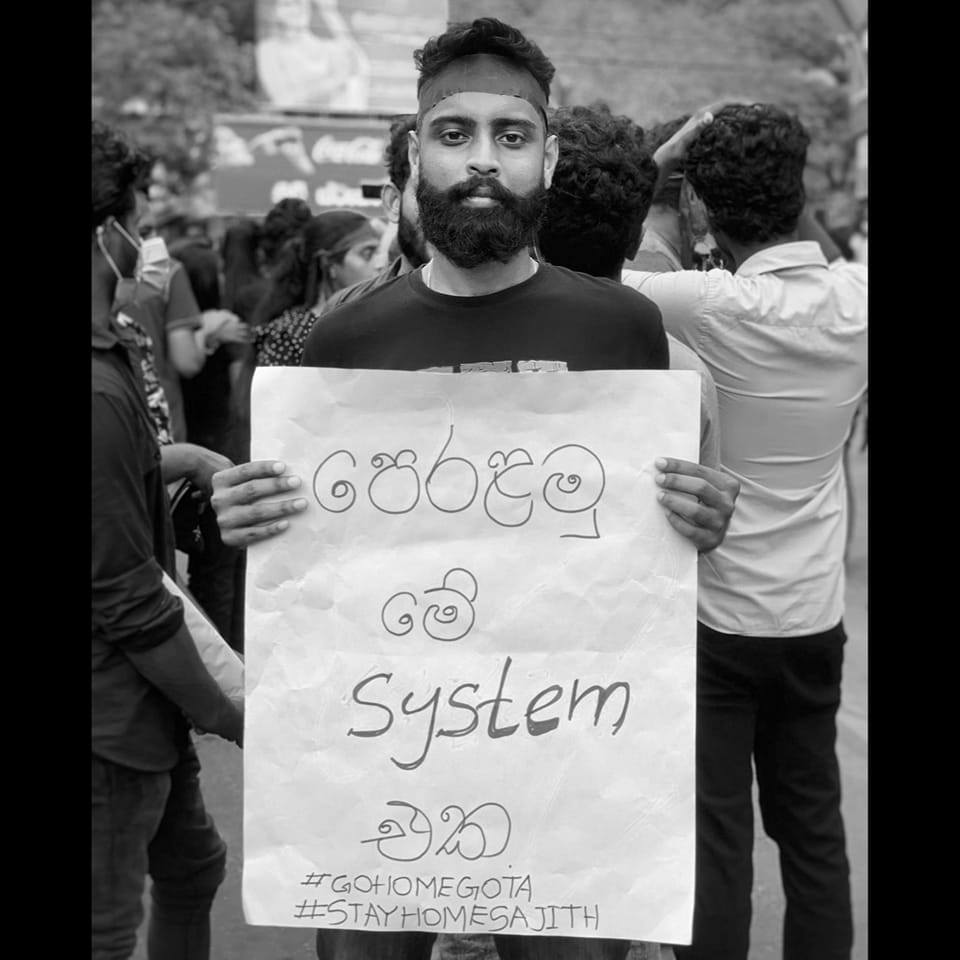 Coca-Cola
පෙරළමු
මේ
system
එක
#GOHOMEGOTA
#STAYHOMESAJITH